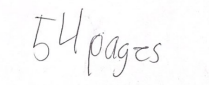 54 pages